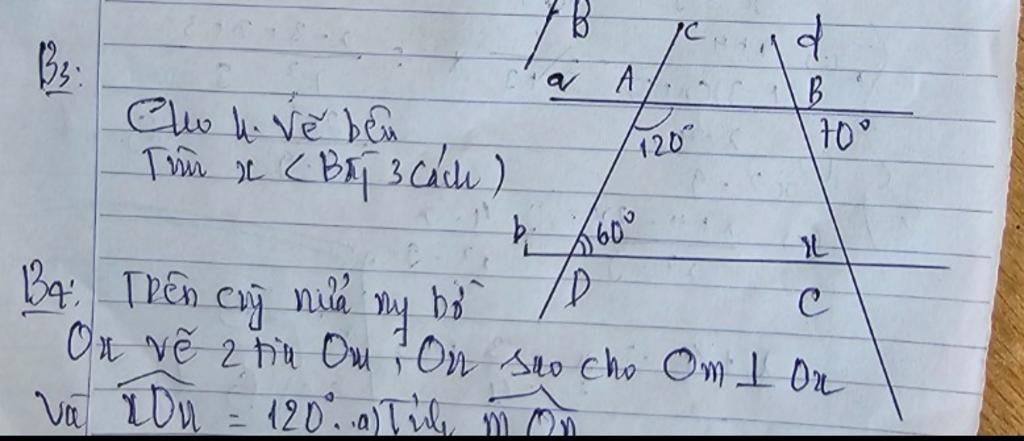 B
B3:
Cho h. vẽ bên
Tìm x (Bằg 3 cách)
a A c d B
120° 70°
b 60° x
D C
B4: Trên cùg nửa mp bờ
Ox vẽ 2 tia Om, On sao cho Om ⊥ Ox
và xOn = 120°. a) Tính mOn